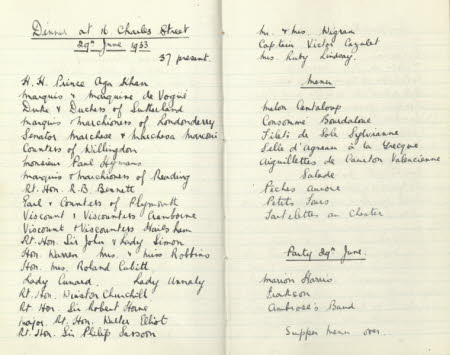 Dinner at 16 Charles Street
29th June 1933
37 present.
H. H. Prince Aga Khan
Marquis & Marquise de Vogüé
Duke & Duchess of Sutherland
Marquis & Marchioness of Londonderry
Senator Marchese & Marchesa Marconi
Countess of Willingdon
Monsieur Paul Hymans
Marquis & Marchioness of Reading
Rt. Hon. R. B. Bennett
Earl & Countess of Plymouth
Viscount & Viscountess Cranborne
Viscount & Viscountess Hailsham
Rt. Hon. Sir John & Lady Simon
Hon. Warren Mrs. & Miss Robbins
Hon. Mrs. Roland Cubitt
Lady Cunard. Lady Annaly
Rt. Hon. Winston Churchill
Rt Hon Sir Robert Horne
Major Rt. Hon. Walter Elliot
Rt Hon Sir Philip Sassoon
Mr. & Mrs. Wigram
Captain Victor Cazalet
Mrs. Ruby Lindsay.
Menu
Melon Cantaloup
Consommé Bourdaloue
Filets de Sole Sylvianne
Selle d'agneau à la Grecque
Aiguillettes de Caneton Valencienne
Salade
Pêches aurore
Petits Fours
Tartelettes au Chester
Party 29th June.
Marion Harris
Ambrose's Band
Supper menu over.